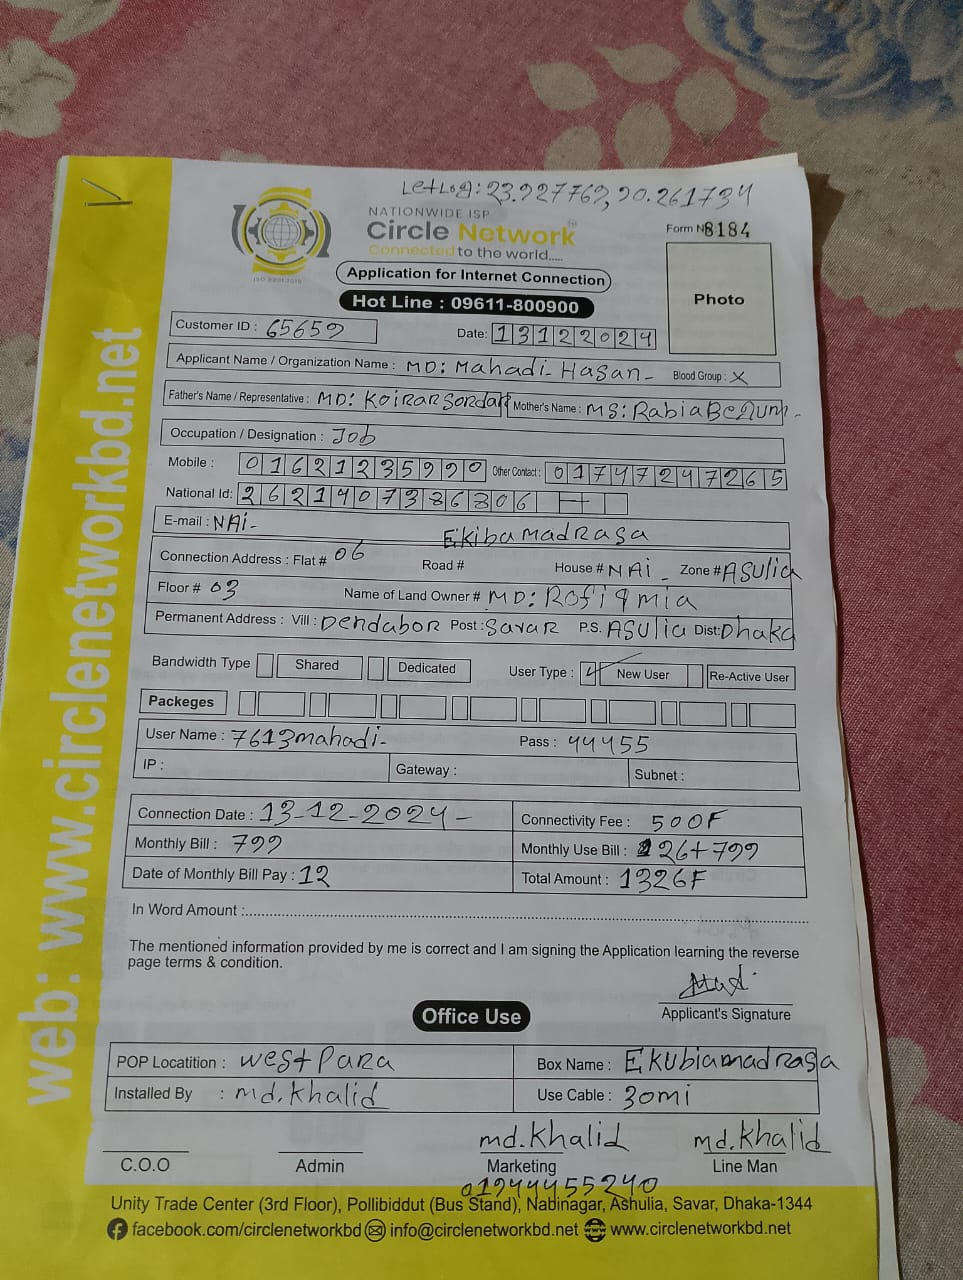 LetLog: 23.927762, 90.261734
NATIONWIDE ISP
Circle Network
Connected to the world.....
ISO 9001:2015
Form N 8184
Application for Internet Connection
Hot Line : 09611-800900
Photo
Customer ID : 65659
Date: 13122024
Applicant Name / Organization Name : MD: Mahadi Hasan - Blood Group : X
Father's Name / Representative : MD: Koirar Sordar Mother's Name : MS: Rabia Begum -
Occupation / Designation : Job
Mobile : 01621235990 Other Contact : 01747247265
National Id: 2621407386806
E-mail : NAi -
Ekiba madrasa
Connection Address : Flat # 06 Road # House # NAi Zone # ASulia
Floor # 03 Name of Land Owner # MD: Rofiq mia
Permanent Address : Vill : Dendabor Post : Savar P.S. ASulia Dist: Dhaka
Bandwidth Type Shared Dedicated User Type : New User Re-Active User
Packeges
User Name : 7613mahadi - Pass : 44455
IP : Gateway : Subnet :
Connection Date : 13-12-2024 - Connectivity Fee : 500F
Monthly Bill : 799 Monthly Use Bill : 26+799
Date of Monthly Bill Pay : 12 Total Amount : 1326F
In Word Amount :
The mentioned information provided by me is correct and I am signing the Application learning the reverse
page terms & condition.
Applicant's Signature
Office Use
POP Locatition : west Para Box Name : Ekubiamadrasa
Installed By : md. Khalid Use Cable : 30mi
md. Khalid md. Khalid
C.O.O Admin Marketing Line Man
01944455240
Unity Trade Center (3rd Floor), Pollibiddut (Bus Stand), Nabinagar, Ashulia, Savar, Dhaka-1344
facebook.com/circlenetworkbd info@circlenetworkbd.net www.circlenetworkbd.net
web: www.circlenetworkbd.net